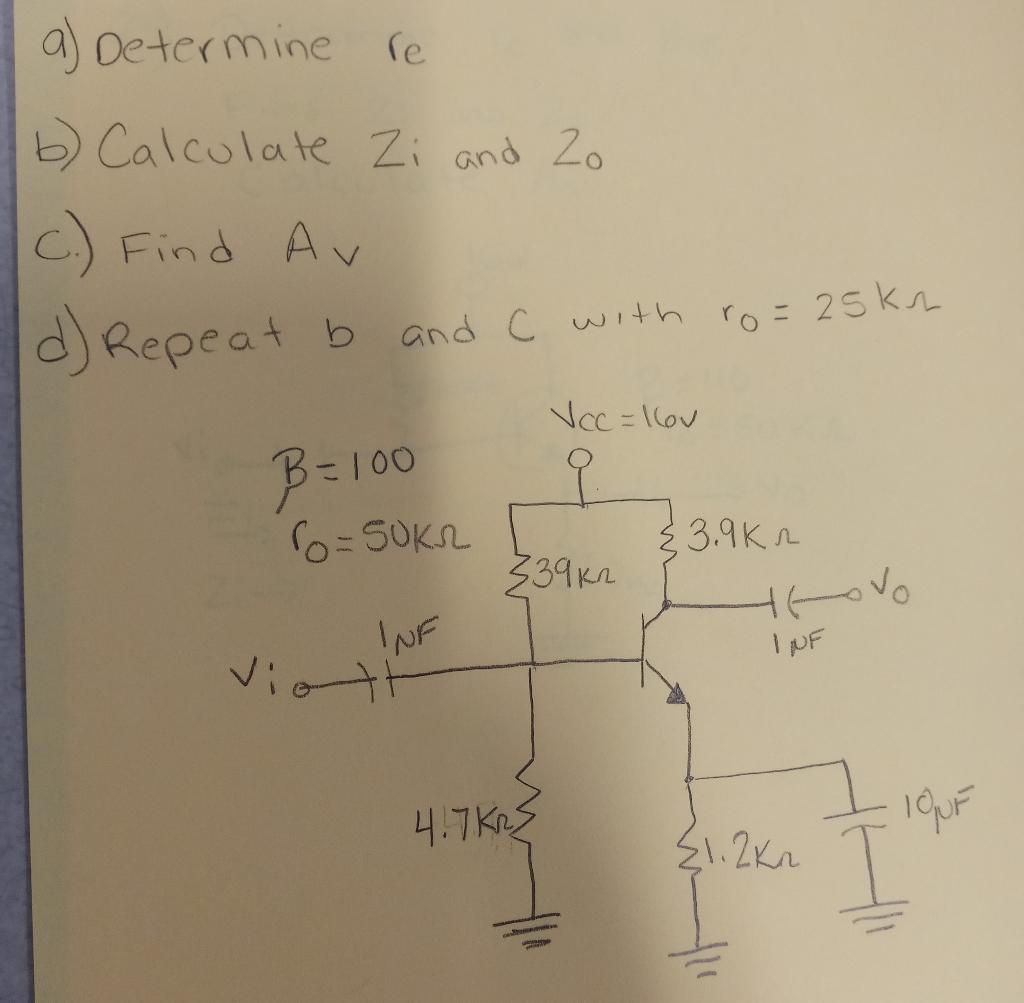 a) Determine re
b) Calculate Zi and Zo
C.) Find Av
d) Repeat b and C with ro = 25KΩ
Vcc = 16v
β = 100
ro = 50KΩ
3.9KΩ
39KΩ
Vo
1μF
1μF
Vi
4.7KΩ
10μF
1.2KΩ